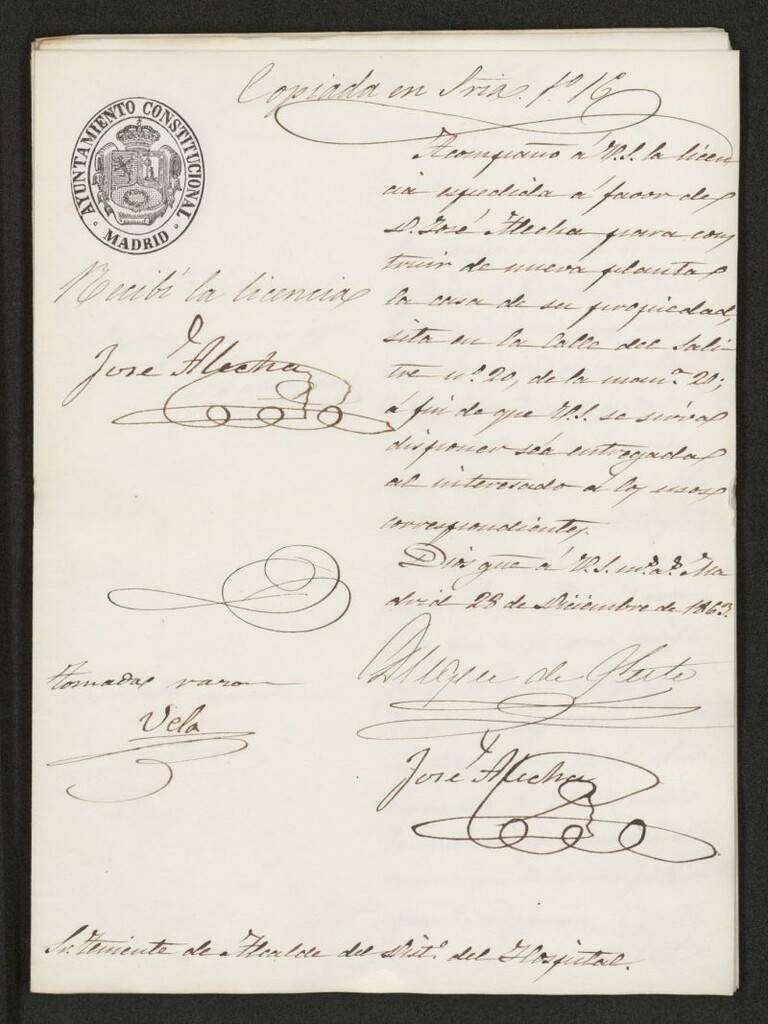 Copiada en Sria. fº 16
AYUNTAMIENTO CONSTITUCIONAL
MADRID
Acompaño á V.S. la licen
cia espedida á favor de
D. José Alecha para cons
truir de nueva planta
la casa de su propiedad,
sita en la Calle del Sali-
tre nº. 20, de la manª 20;
á fin de que V.S. se sirva
disponer sea entregada
al interesado á los usos
correspondientes.
Dios gue á V.S. mº. aº. Ma
drid 28 de Diciembre de 1863.
Duque de Sesto
José Alecha
Recibí la licencia
José Alecha
tomada razon
Vela
Sr. Teniente de Alcalde del Distº. del Hospital.